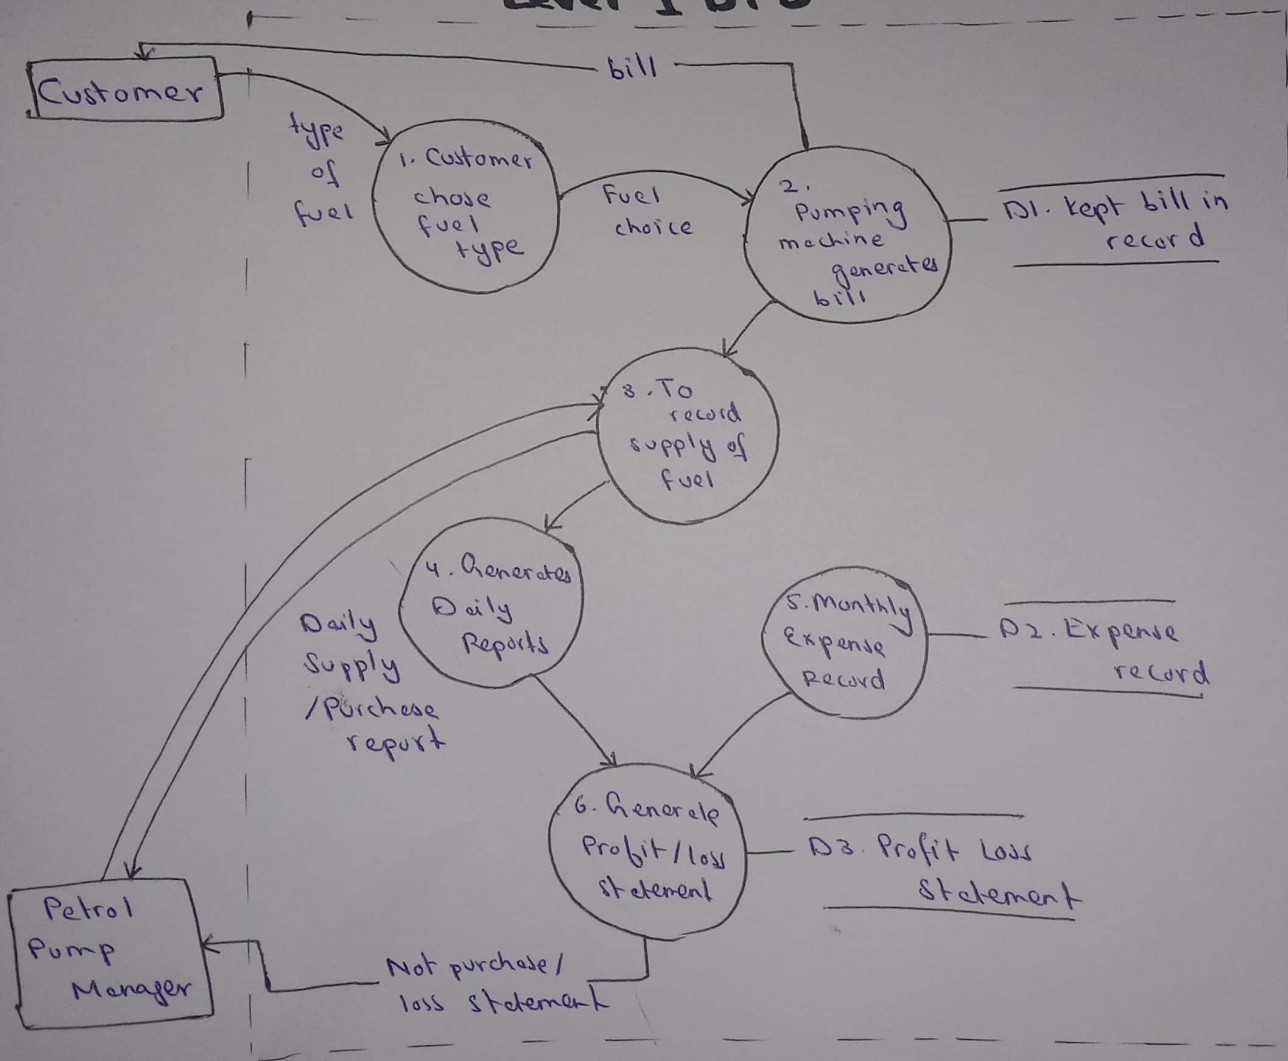 Level 1 DFD
bill
Customer
type
of
fuel
1. Customer
chose
fuel
type
Fuel
choice
2.
Pumping
machine
generates
bill
D1. Kept bill in
record
3. To
record
supply of
fuel
4. Generates
Daily
Reports
Daily
Supply
/Purchase
report
5. Monthly
Expense
Record
D2. Expense
record
6. Generate
Profit/loss
statement
D3. Profit Loss
Statement
Petrol
Pump
Manager
Not purchase/
loss statement